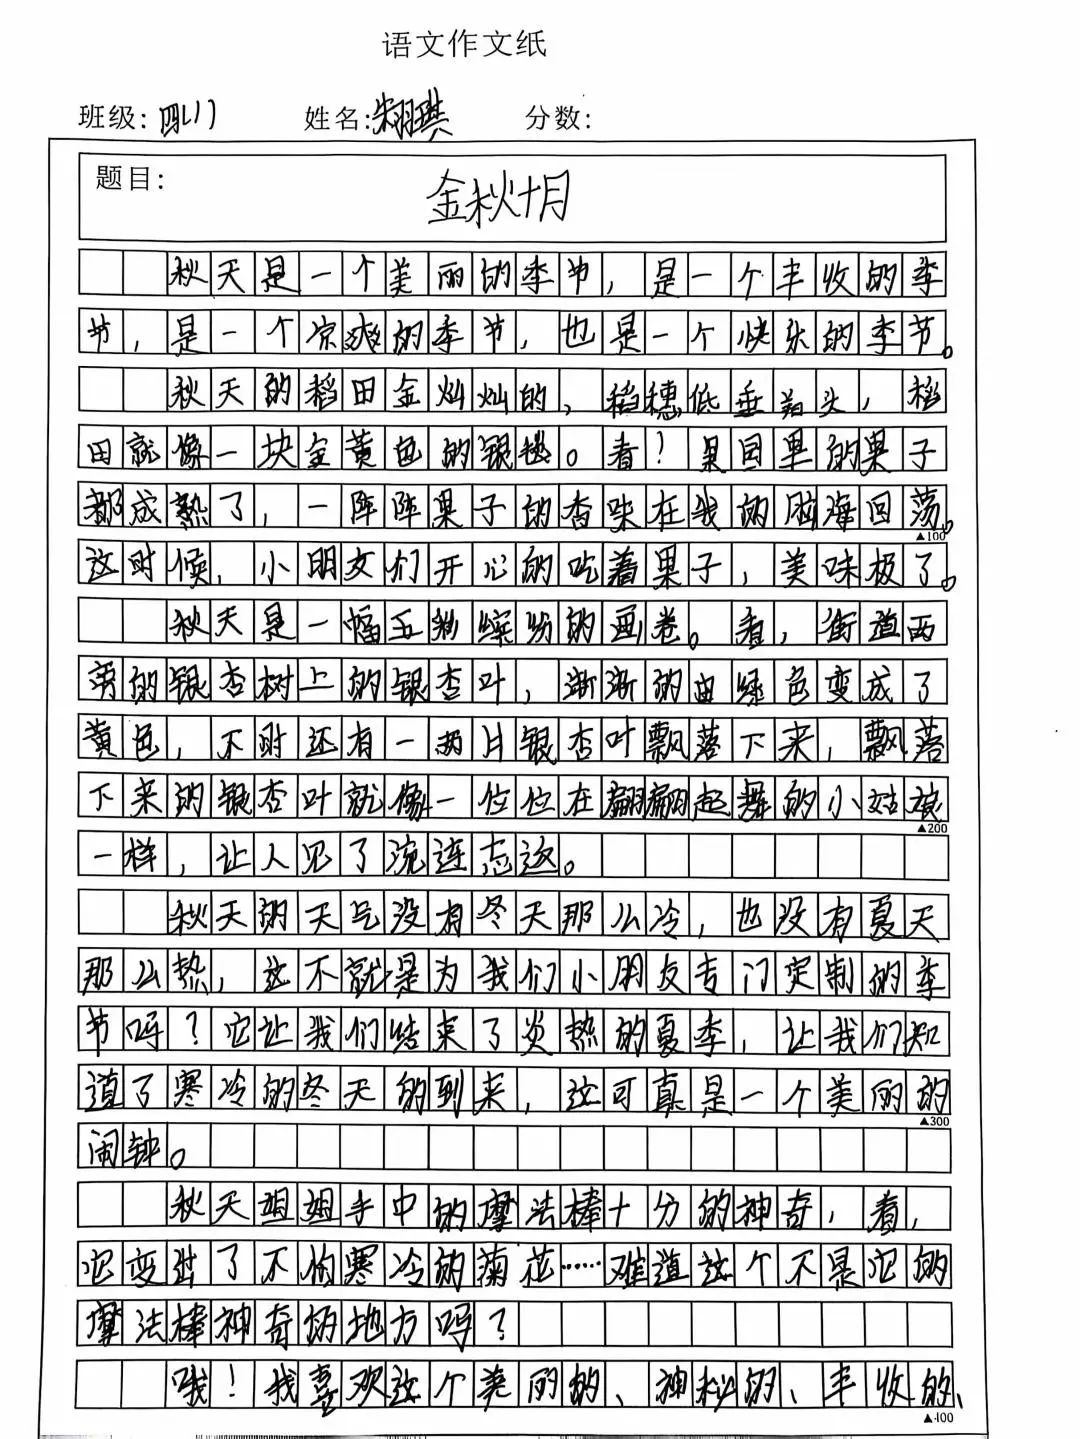 语文作文纸
班级: 四(1) 姓名: 朱翊琪 分数:
题目:
金秋十月
秋天是一个美丽的季节，是一个丰收的季
节，是一个凉爽的季节，也是一个快乐的季节。
秋天的稻田金灿灿的，稻穗低垂着头，稻
田就像一块金黄色的银毯。看！果园里的果子
都成熟了，一阵阵果子的香味在我的脑海回荡。
这时候，小朋友们开心的吃着果子，美味极了。
秋天是一幅五彩缤纷的画卷。看，街道两
旁的银杏树上的银杏叶，渐渐的由绿色变成了
黄色，不时还有一两片银杏叶飘落下来，飘落
下来的银杏叶就像一位位在翩翩起舞的小姑娘
一样，让人见了流连忘返。
秋天的天气没有冬天那么冷，也没有夏天
那么热，这不就是为我们小朋友专门定制的季
节吗？它让我们结束了炎热的夏季，让我们知
道了寒冷的冬天的到来，这可真是一个美丽的
闹钟。
秋天姐姐手中的摩法棒十分的神奇，看，
它变出了不怕寒冷的菊花……难道这个不是它的
摩法棒神奇的地方吗？
哦！我喜欢这个美丽的、神秘的、丰收的、
▲100
▲200
▲300
▲400